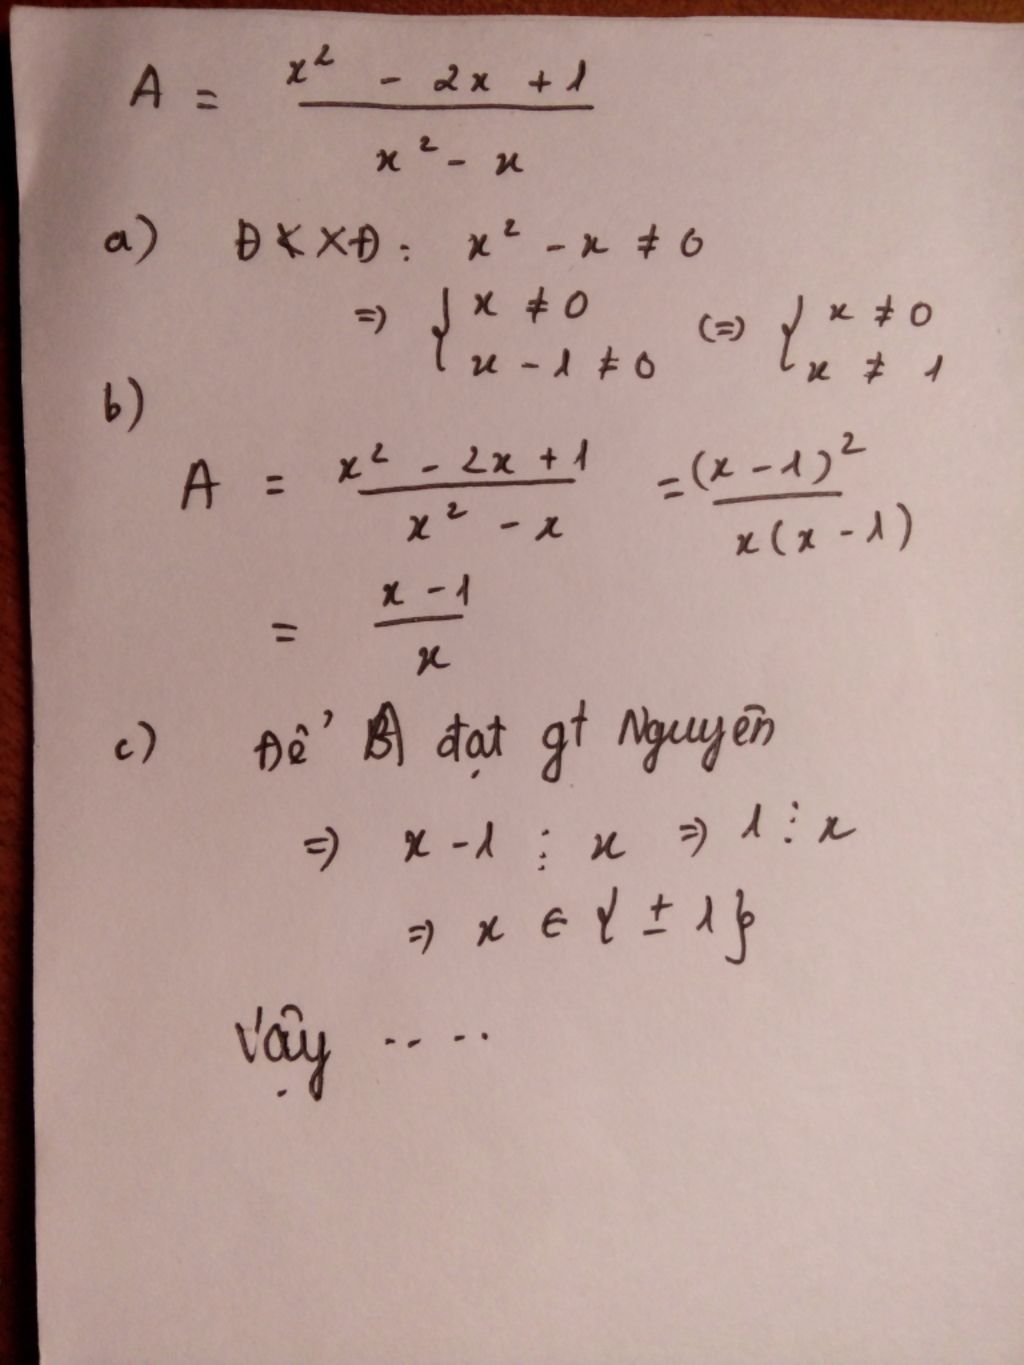 A = x² - 2x + 1 / x² - x
a) ĐKXĐ : x² - x ≠ 0
=> { x ≠ 0 (=) { x ≠ 0
x - 1 ≠ 0 x ≠ 1
b)
A = x² - 2x + 1 / x² - x = (x - 1)² / x(x - 1)
= x - 1 / x
c) Để A đạt gt Nguyên
=> x - 1 ⋮ x => 1 ⋮ x
=> x ∈ { ± 1 }
Vậy ....